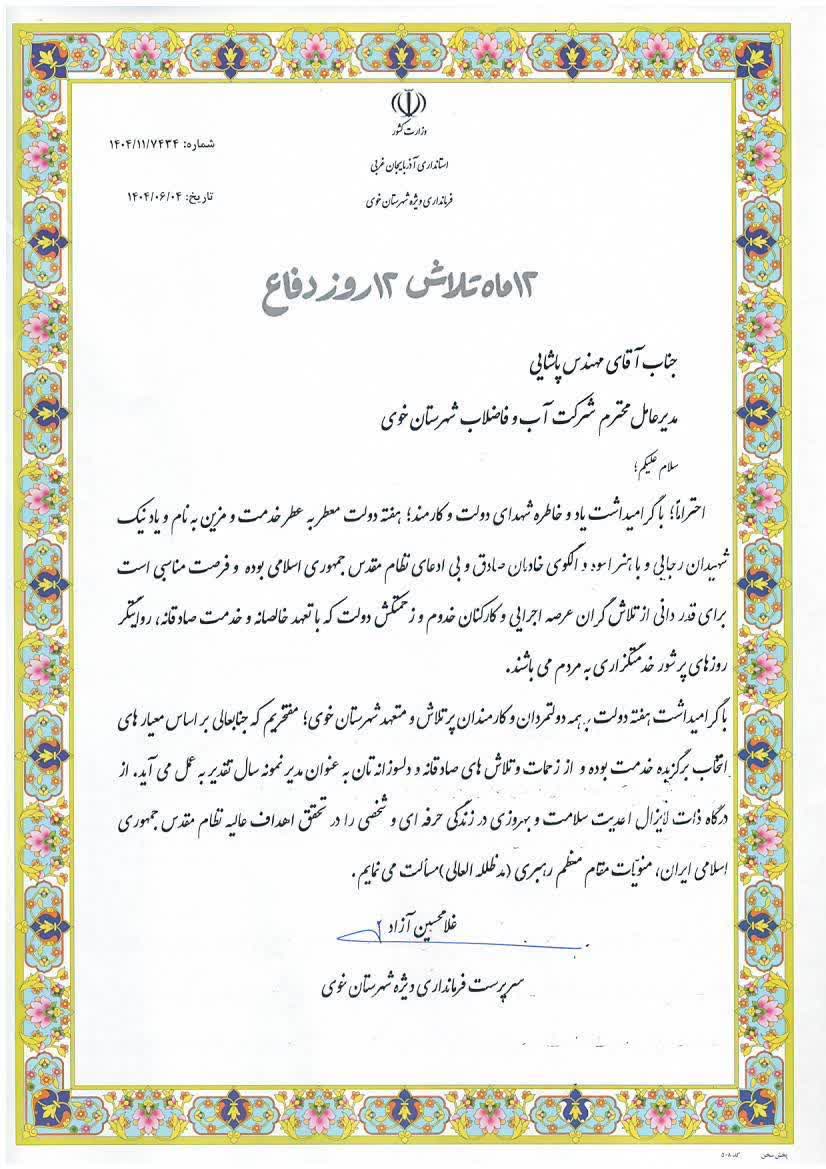 وزارت کشور
شماره: ۱۴۰۴/۱۱/۷۴۳۴
استانداری آذربایجان غربی
تاریخ: ۱۴۰۴/۰۶/۰۴
فرمانداری ویژه شهرستان خوی
۱۲ماه تلاش ۱۲روز دفاع
جناب آقای مهندس پاشایی
مدیرعامل محترم شرکت آب و فاضلاب شهرستان خوی
سلام علیکم؛
احتراماً؛ با گرامیداشت یاد و خاطره شهدای دولت و کارمند؛ هفته دولت معطر به عطر خدمت و مزین به نام و یاد نیک
شهیدان رجایی و باهنر اسوه و الگوی خادمان صادق و بی ادعای نظام مقدس جمهوری اسلامی بوده و فرصت مناسبی است
برای قدر دانی از تلاش گران عرصه اجرایی و کارکنان خدوم و زحمتکش دولت که با تعهد خالصانه و خدمت صادقانه، روایتگر
روزهای پرشور خدمتگزاری به مردم می باشند.
با گرامیداشت هفته دولت بر همه دولتمردان و کارمندان پرتلاش و متعهد شهرستان خوی؛ مفتخریم که جنابعالی بر اساس معیار های
انتخاب برگزیده خدمت بوده و از زحمات و تلاش های صادقانه و دلسوزانه تان به عنوان مدیر نمونه سال تقدیر به عمل می آید. از
درگاه ذات لایزال احدیت سلامت و بهروزی در زندگی حرفه ای و شخصی را در تحقق اهداف عالیه نظام مقدس جمهوری
اسلامی ایران، منویات مقام معظم رهبری (مدظلله العالی)مسألت می نمایم.
غلامحسین آزاد
سرپرست فرمانداری ویژه شهرستان خوی
پخش سخن کد ۵۰۸